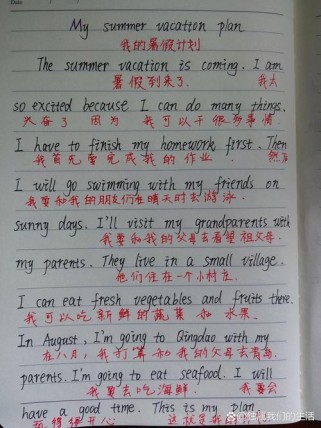 My summer vacation plan
我的暑假计划
The summer vacation is coming. I am
暑假到来了. 我太
so excited because I can do many things.
兴奋了 因为 我可以干很多事情
I have to finish my homework first. Then
我首先要完成我的作业. 然后
I will go swimming with my friends on
我要和我的朋友们在晴天时去游泳.
sunny days. I'll visit my grandparents with
我要和我的父母去看望祖父母.
my parents. They live in a small village.
他们住在一个小村庄.
I can eat fresh vegetables and fruits there.
我可以吃新鲜的蔬菜和水果.
In August, I'm going to Qingdao with my
在八月,我打算和我的父母去青岛.
parents. I'm going to eat seafood. I will
我要去吃海鲜. 我要会
have a good time. This is my plan.
玩得很开心 这就是我的